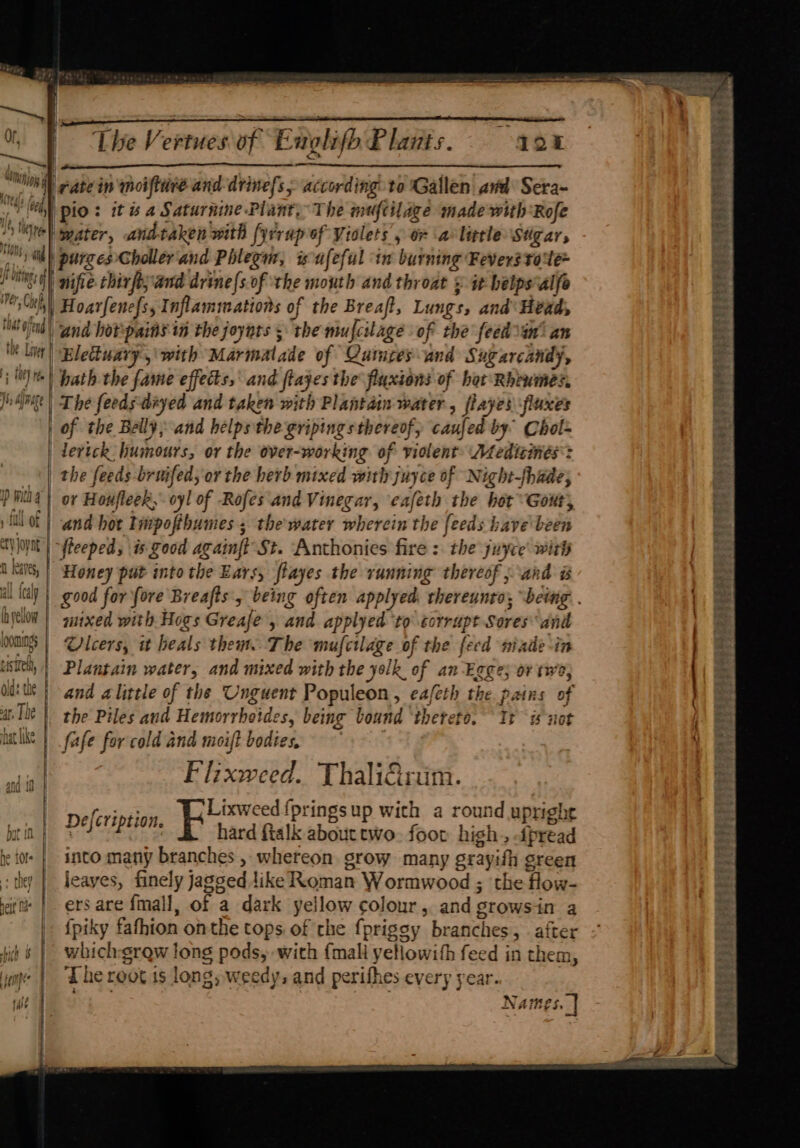 The Vertues of Engliſh Plants. 121
rate in moiſture and drineſs, according to Gallen and Sera-
pio : it is a Saturnine Plant, The muſcilage made with Roſe
water, and taken with ſyrrup of Violets, or a little Sugar,
purges Choller and Phlegm, is uſeful in burning Fevers to le-
nifie thirſt, and drineſs of the mouth and throat ; it helps alſo
Hoarſeneſs, Inflammations of the Breaſt, Lungs, and Head,
and hot pains in the joynts ; the muſcilage of the ſeed in an
Electuary, with Marmalade of Quinces and Sugarcandy,
hath the ſame effects, and ſtayes the fluxions of hot Rheumes.
The ſeeds dryed and taken with Plantain water, ſtayes fluxes
of the Belly, and helps the gripings thereof, cauſed by Chol-
lerick humours, or the over-working of violent Medicines :
the ſeeds bruiſed, or the herb mixed with juyce of Night-ſhade,
or Houſleek, oyl of Roſes and Vinegar, eaſeth the hot Gout,
and hot Impoſthumes ; the water wherein the ſeeds have been
ſteeped, is good againſt St. Anthonies fire : the juyce with
Honey put into the Ears, ſtayes the running thereof, and is
good for ſore Breaſts, being often applyed thereunto; being
mixed with Hogs Greaſe, and applyed to corrupt Sores and
Ulcers, it heals them. The muſcilage of the ſeed made in
Plantain water, and mixed with the yolk of an Egge, or two,
and a little of the Unguent Populeon, eaſeth the pains of
the Piles and Hemorrhoides, being bound thereto. It is not
ſafe for cold and moiſt bodies.
Flixweed. Thalictrum.
Deſcription. FLixweed ſprings up with a round upright
hard ſtalk about two foot high, ſpread
into many branches, whereon grow many grayiſh green
leaves, finely jagged like Roman Wormwood ; the flow-
ers are ſmall, of a dark yellow colour, and grows in a
ſpiky faſhion on the tops of the ſpriggy branches, after
which grow long pods, with ſmall yellowiſh ſeed in them,
The root is long, weedy, and periſhes every year.
Names. ]